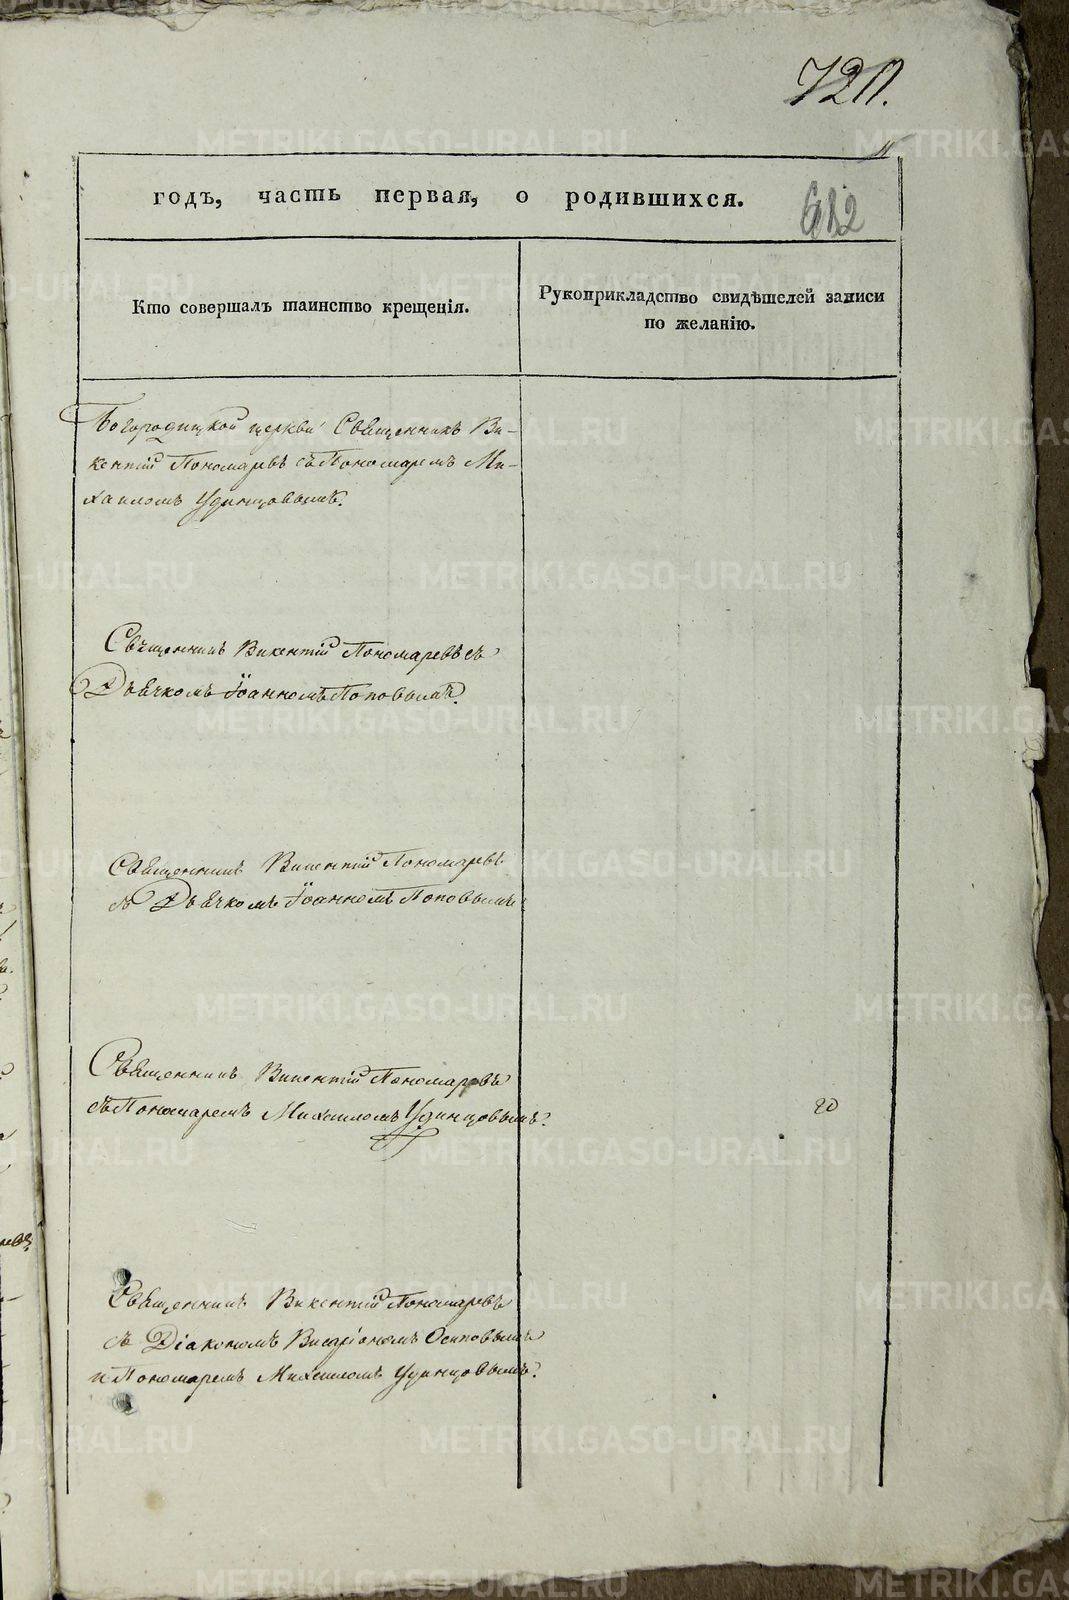 720.
годъ, часть первая, о родившихся.
682
Кто совершалъ таинство крещенія.
Рукоприкладство свидѣтелей записи
по желанію.
Богородицкой церкви Священникъ Ви-
кентій Пономаревъ съ Пономаремъ Ми-
хаиломъ Удинцовымъ.
Священникъ Викентій Пономаревъ съ
Дьячкомъ Іоанномъ Поповымъ.
Священникъ Викентій Пономаревъ
съ Дьячкомъ Іоанномъ Поповымъ
Священникъ Викентій Пономаревъ
съ Пономаремъ Михаиломъ Удинцовымъ.
20
Священникъ Викентій Пономаревъ
съ Діакономъ Висаріономъ Осиповымъ
и Пономаремъ Михаиломъ Удинцовымъ.
METRIKI.GASO-URAL.RU